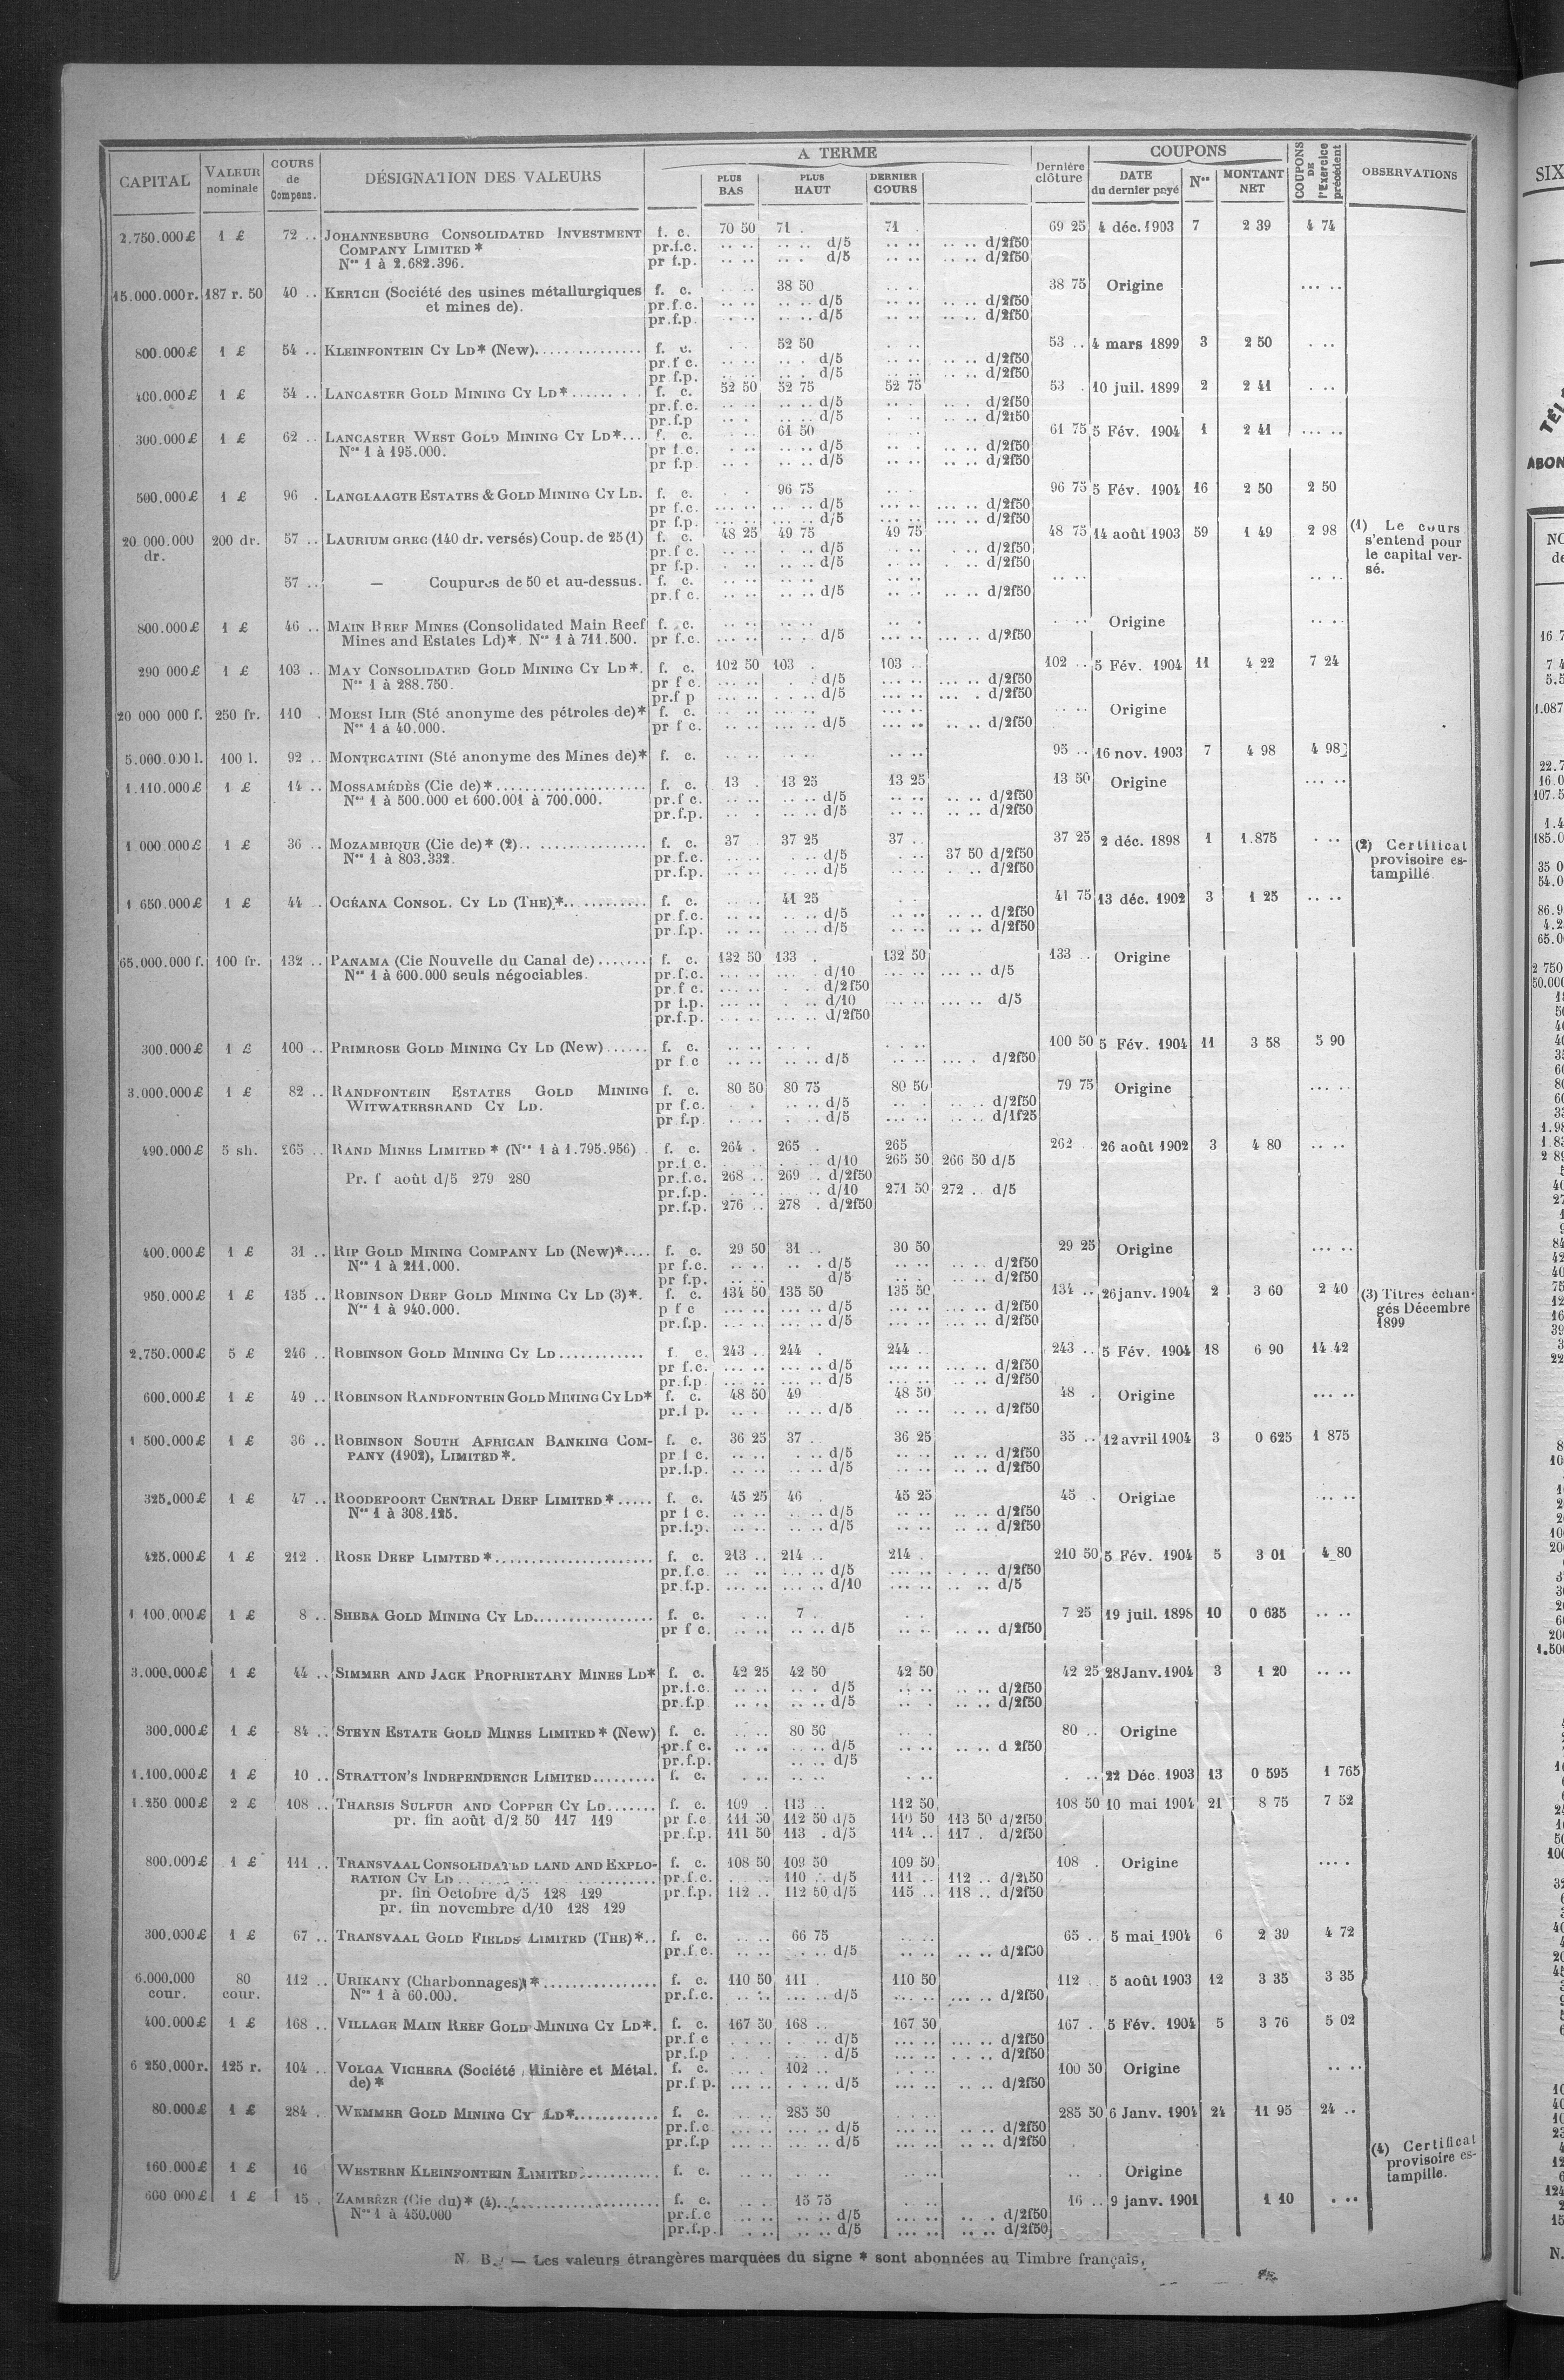 CAPITAL | VALEUR nominale | COURS de Compens. | DÉSIGNATION DES VALEURS | A TERME | PLUS BAS | PLUS HAUT | DERNIER COURS | Dernière clôture | COUPONS | DATE du dernier payé | Nos | MONTANT NET | COUPONS DE l'Exercice précédent | OBSERVATIONS
2.750.000 £ 1 £ 72 .. JOHANNESBURG CONSOLIDATED INVESTMENT f. c. 70 50 71 . 71 . 69 25 4 déc. 1903 7 2 39 4 74
COMPANY LIMITED * pr.f.c. .. .. .. .. d/5 .. .. .. .. d/2f50
Nos 1 à 2.682.396. pr f.p. .. .. .. . d/5 .. .. .. .. d/2f50
15.000.000 r. 187 r. 50 40 .. KERTCH (Société des usines métallurgiques f. c. 38 50 38 75 Origine ... ..
et mines de). pr.f.c. .. .. .. .. d/5 .. .. .. .. d/2f50
pr.f.p. .. .. .. .. d/5 .. .. .. .. d/2f50
800.000 £ 1 £ 54 .. KLEINFONTEIN CY LD* (New). f. c. 52 50 53 .. 4 mars 1899 3 2 50 . ..
pr.f c. .. .. .. .. d/5 .. .. .. .. d/2f50
pr f.p. .. .. .. .. d/5 .. .. .. .. d/2f50
400.000 £ 1 £ 54 .. LANCASTER GOLD MINING CY LD* f. c. 52 50 52 75 52 75 53 . 10 juil. 1899 2 2 41 . ..
pr.f.c. .. .. .. .. d/5 .. .. .. .. d/2f50
pr.f.p .. .. .. .. d/5 .. .. .. .. d/2f50
300.000 £ 1 £ 62 .. LANCASTER WEST GOLD MINING CY LD*... f. c. 61 50 61 75 5 Fév. 1904 1 2 41 ... ..
Nos 1 à 195.000. pr f.c. .. .. .. .. d/5 .. .. .. .. d/2f50
pr f.p. .. .. .. .. d/5 .. .. .. .. d/2f50
500.000 £ 1 £ 96 . LANGLAAGTE ESTATES & GOLD MINING CY LD. f. c. 96 75 96 75 5 Fév. 1904 16 2 50 2 50
pr f.c. ... .. ... .. d/5 ... .. ... .. d/2f50
pr f.p. ... .. ... .. d/5 ... .. ... .. d/2f50
20.000.000 dr. 200 dr. 57 .. LAURIUM GREC (140 dr. versés) Coup. de 25 (1) f. c. 48 25 49 75 49 75 48 75 14 août 1903 59 1 49 2 98 (1) Le cours s'entend pour le capital versé.
pr.f c. .. .. .. .. d/5 .. .. .. .. d/2f50
pr f.p. .. .. .. .. d/5 .. .. .. .. d/2f50
57 .. — Coupures de 50 et au-dessus. f. c. .. .. .. .. .. .. .. .. .. ..
pr.f c. .. .. .. .. d/5 .. .. .. .. d/2f50
800.000 £ 1 £ 46 .. MAIN REEF MINES (Consolidated Main Reef f. c. .. .. .. .. .. .. Origine .. ..
Mines and Estates Ld)*. Nos 1 à 711.500. pr f.c. ... .. .. .. d/5 .. .. ... .. d/2f50
290 000 £ 1 £ 103 .. MAY CONSOLIDATED GOLD MINING CY LD*. f. c. 102 50 103 . 103 .. 102 .. 5 Fév. 1904 11 4 22 7 24
Nos 1 à 288.750. pr f c. ... .. d/5 ... .. ... .. d/2f50
pr.f p ... .. d/5 ... .. ... . d/2f50
20 000 000 f. 250 fr. 110 . MOESI ILIR (Sté anonyme des pétroles de)* f. c. .. .. .. .. .. .. Origine .. ..
Nos 1 à 40.000. pr f c. ... .. ... .. d/5 ... .. .. .. d/2f50
5.000.000 l. 100 l. 92 .. MONTECATINI (Sté anonyme des Mines de)* f. c. .. .. .. .. .. .. 95 .. 16 nov. 1903 7 4 98 4 98
1.110.000 £ 1 £ 14 .. MOSSAMÉDÈS (Cie de)* f. c. 13 . 13 25 13 25 13 50 Origine ... ..
Nos 1 à 500.000 et 600.001 à 700.000. pr.f c. .. .. .. .. d/5 .. .. .. .. d/2f50
pr.f.p. .. .. .. .. d/5 .. .. .. .. d/2f50
1 000.000 £ 1 £ 36 .. MOZAMBIQUE (Cie de)* (2) f. c. 37 37 25 37 .. 37 25 2 déc. 1898 1 1.875 . .. (2) Certificat provisoire estampillé.
Nos 1 à 803.332. pr.f.c. .. .. . .. d/5 . .. 37 50 d/2f50
pr.f.p. .. .. .. .. d/5 .. .. . .. d/2f50
1 650.000 £ 1 £ 44 .. OCÉANA CONSOL. CY LD (THE)* f. c. 41 25 41 75 13 déc. 1902 3 1 25 .. ..
pr.f.c. .. .. .. .. d/5 .. .. .. .. d/2f50
pr.f.p. .. .. .. .. d/5 .. .. .. .. d/2f50
65.000.000 f. 100 fr. 132 .. PANAMA (Cie Nouvelle du Canal de) f. c. 132 50 133 . 132 50 133 .. Origine
Nos 1 à 600.000 seuls négociables. pr.f.c. ... .. ... . d/10 ... .. ... .. d/5
pr.f c. ... .. . .. d/2f50
pr f.p. ... .. . .. d/10 .. .. ... .. d/5
pr.f.p. ... .. ... .. d/2f50
300.000 £ 1 £ 100 .. PRIMROSE GOLD MINING CY LD (New) f. c. .. .. .. .. .. .. 100 50 5 Fév. 1904 11 3 58 5 90
pr f c ... .. ... .. d/5 .. .. ... . d/2f50
3.000.000 £ 1 £ 82 .. RANDFONTEIN ESTATES GOLD MINING f. c. 80 50 80 75 80 50 79 75 Origine ... ..
WITWATERSRAND CY LD. pr f.c. . . .. .. d/5 .. . .. .. d/2f50
pr f.p. .. .. .. .. d/5 ... .. .. .. d/1f25
490.000 £ 5 sh. 265 .. RAND MINES LIMITED * (Nos 1 à 1.795.956) . f. c. 264 . 265 . 265 262 .. 26 août 1902 3 4 80 .. ..
pr.f c. . .. d/10 265 50 266 50 d/5
Pr. f août d/5 279 280 pr.f.c. 268 .. 269 .. d/2f50
pr.f.p. .. .. d/10 271 50 272 .. d/5
pr.f.p. 276 .. 278 . d/2f50
400.000 £ 1 £ 31 .. RIP GOLD MINING COMPANY LD (New)* f. c. 29 50 31 .. 30 50 29 25 Origine ... ..
Nos 1 à 211.000. pr f.c. .. .. .. . d/5 .. .. .. .. d/2f50
pr f.p. .. .. d/5 .. . .. .. d/2f50
950.000 £ 1 £ 135 .. ROBINSON DEEP GOLD MINING CY LD (3)*. f. c. 134 50 135 50 135 50 134 .. 26 janv. 1904 2 3 60 2 40 (3) Titres échangés Décembre 1899
Nos 1 à 940.000. p f c ... .. ... .. d/5 ... .. ... .. d/2f50
pr.f.p. ... .. ... .. d/5 ... .. ... .. d/2f50
2.750.000 £ 5 £ 246 .. ROBINSON GOLD MINING CY LD f. c. 243 .. 244 . 244 .. 243 .. 5 Fév. 1904 18 6 90 14 42
pr f.c. ... .. ... .. d/5 ... .. ... .. d/2f50
pr.f.p ... .. ... .. d/5 ... .. ... .. d/2f50
600.000 £ 1 £ 49 .. ROBINSON RANDFONTEIN GOLD MINING CY LD* f. c. 48 50 49 48 50 48 . Origine ... ..
pr.f p. .. . .. .. d/5 .. .. .. .. d/2f50
1 500.000 £ 1 £ 36 .. ROBINSON SOUTH AFRICAN BANKING COM- f. c. 36 25 37 . 36 25 35 .. 12 avril 1904 3 0 625 1 875
PANY (1902), LIMITED*. pr f c. .. .. . .. d/5 .. .. .. .. d/2f50
pr.f.p. .. .. .. .. d/5 .. .. .. .. d/2f50
325.000 £ 1 £ 47 .. ROODEPOORT CENTRAL DEEP LIMITED* f. c. 45 25 46 . 45 25 45 .. Origine .. ..
Nos 1 à 308.125. pr f c. .. .. .. .. d/5 .. .. .. .. d/2f50
pr.f.p. .. .. .. .. d/5 .. .. .. .. d/2f50
425.000 £ 1 £ 212 . ROSE DEEP LIMITED* f. c. 213 .. 214 .. 214 . 210 50 5 Fév. 1904 5 3 01 4 80
pr.f.c ... .. ... .. d/5 ... .. . .. d/2f50
pr.f.p. ... .. ... .. d/10 ... .. .. .. d/5
1 100.000 £ 1 £ 8 .. SHEBA GOLD MINING CY LD. f. c. 7 .. 7 25 19 juil. 1898 10 0 635 .. ..
pr f c. .. .. .. .. d/5 .. .. .. .. d/2f50
3.000.000 £ 1 £ 44 .. SIMMER AND JACK PROPRIETARY MINES LD* f. c. 42 25 42 50 42 50 42 25 28 Janv. 1904 3 1 20 .. ..
pr.f.c. .. .. .. . d/5 .. .. .. .. d/2f50
pr.f.p .. .. .. .. d/5 .. . .. .. d/2f50
300.000 £ 1 £ 84 .. STEYN ESTATE GOLD MINES LIMITED* (New) f. c. 80 50 80 .. Origine
pr.f c. .. .. .. .. d/5 .. .. .. .. d 2f50
pr.f.p. .. .. d/5
1.100.000 £ 1 £ 10 .. STRATTON'S INDEPENDENCE LIMITED f. c. . .. .. .. . .. . .. 22 Déc. 1903 13 0 595 1 765
1.250 000 £ 2 £ 108 .. THARSIS SULFUR AND COPPER CY LD f. c. 109 . 113 .. 112 50 108 50 10 mai 1904 21 8 75 7 52
pr. fin août d/2 50 117 119 pr f.c. 111 50 112 50 d/5 110 50 113 50 d/2f50
pr.f.p. 111 50 113 . d/5 114 .. 117 . d/2f50
800.000 £ 1 £ 111 .. TRANSVAAL CONSOLIDATED LAND AND EXPLO- f. c. 108 50 109 50 109 50 108 . Origine ... .
RATION CY LD pr.f.c. . .. 110 .. d/5 111 .. 112 .. d/2f50
pr. fin Octobre d/5 128 129 pr.f.p. 112 .. 112 50 d/5 115 .. 118 .. d/2f50
pr. fin novembre d/10 128 129
300.000 £ 1 £ 67 .. TRANSVAAL GOLD FIELDS LIMITED (THE)*.. f. c. 66 75 65 .. 5 mai 1904 6 2 39 4 72
pr.f.c. .. .. . .. d/5 .. .. .. .. d/2f50
6.000.000 cour. 80 cour. 112 .. URIKANY (Charbonnages)* f. c. 110 50 111 . 110 50 112 .. 5 août 1903 12 3 35 3 35
Nos 1 à 60.000. pr.f.c. .. .. ... .. d/5 ... .. ... .. d/2f50
400.000 £ 1 £ 168 .. VILLAGE MAIN REEF GOLD MINING CY LD*. f. c. 167 50 168 .. 167 50 167 . 5 Fév. 1904 5 3 76 5 02
pr.f c . .. d/5 ... .. ... .. d/2f50
pr.f.p . .. d/5 ... .. ... .. d/2f50
6 250.000 r. 125 r. 104 .. VOLGA VICHERA (Société Minière et Métal. f. c. 102 .. 100 50 Origine .. ..
de)* pr.f p. ... .. .. .. d/5 ... .. .. .. d/2f50
80.000 £ 1 £ 284 . WEMMER GOLD MINING CY LD* f. c. 285 50 285 50 6 Janv. 1904 24 11 95 24 ..
pr.f.c ... .. ... .. d/5 ... .. .. .. d/2f50
pr.f.p ... .. ... .. d/5 ... .. .. .. d/2f50
160.000 £ 1 £ 16 WESTERN KLEINFONTEIN LIMITED f. c. .. .. .. .. .. . Origine (4) Certificat provisoire estampille.
600 000 £ 1 £ 15 . ZAMBÈZE (Cie du)* (4) f. c. 15 75 16 .. 9 janv. 1901 1 10 . ..
Nos 1 à 450.000 pr.f.c .. .. .. .. d/5 .. .. .. .. d/2f50
pr.f.p. . .. .. .. d/5 ... .. .. .. d/2f50
N. B. — Les valeurs étrangères marquées du signe * sont abonnées au Timbre français.
SIX
TÉL
ABON